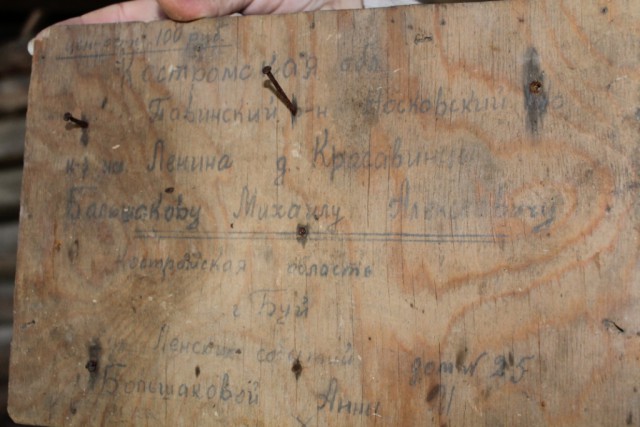 100 руб
Костромская обл
Павинский р-н Носковский с/о
к-з им. Ленина д. Красавинцы
Большакову Михаилу Алексеевичу
Костромская область
г Буй
ул Ленских событий дом № 25
Большаковой Анны И